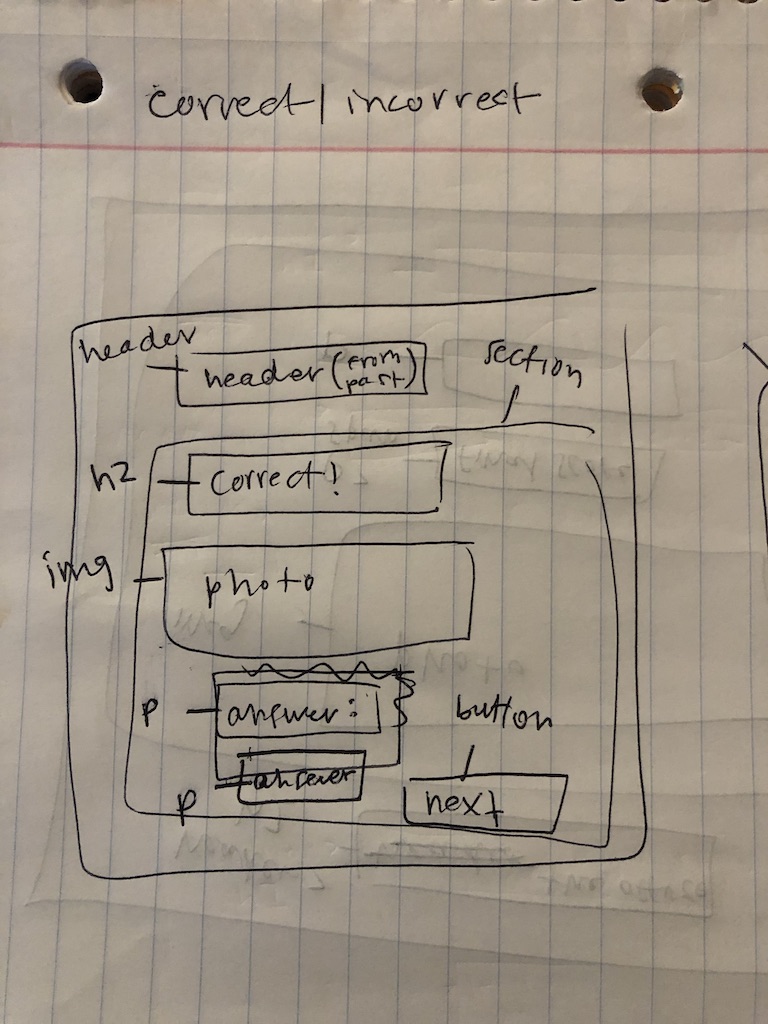 correct/incorrect
header
header (from past)
section
h2
correct!
img
photo
p
answer:
button
p
answer
next